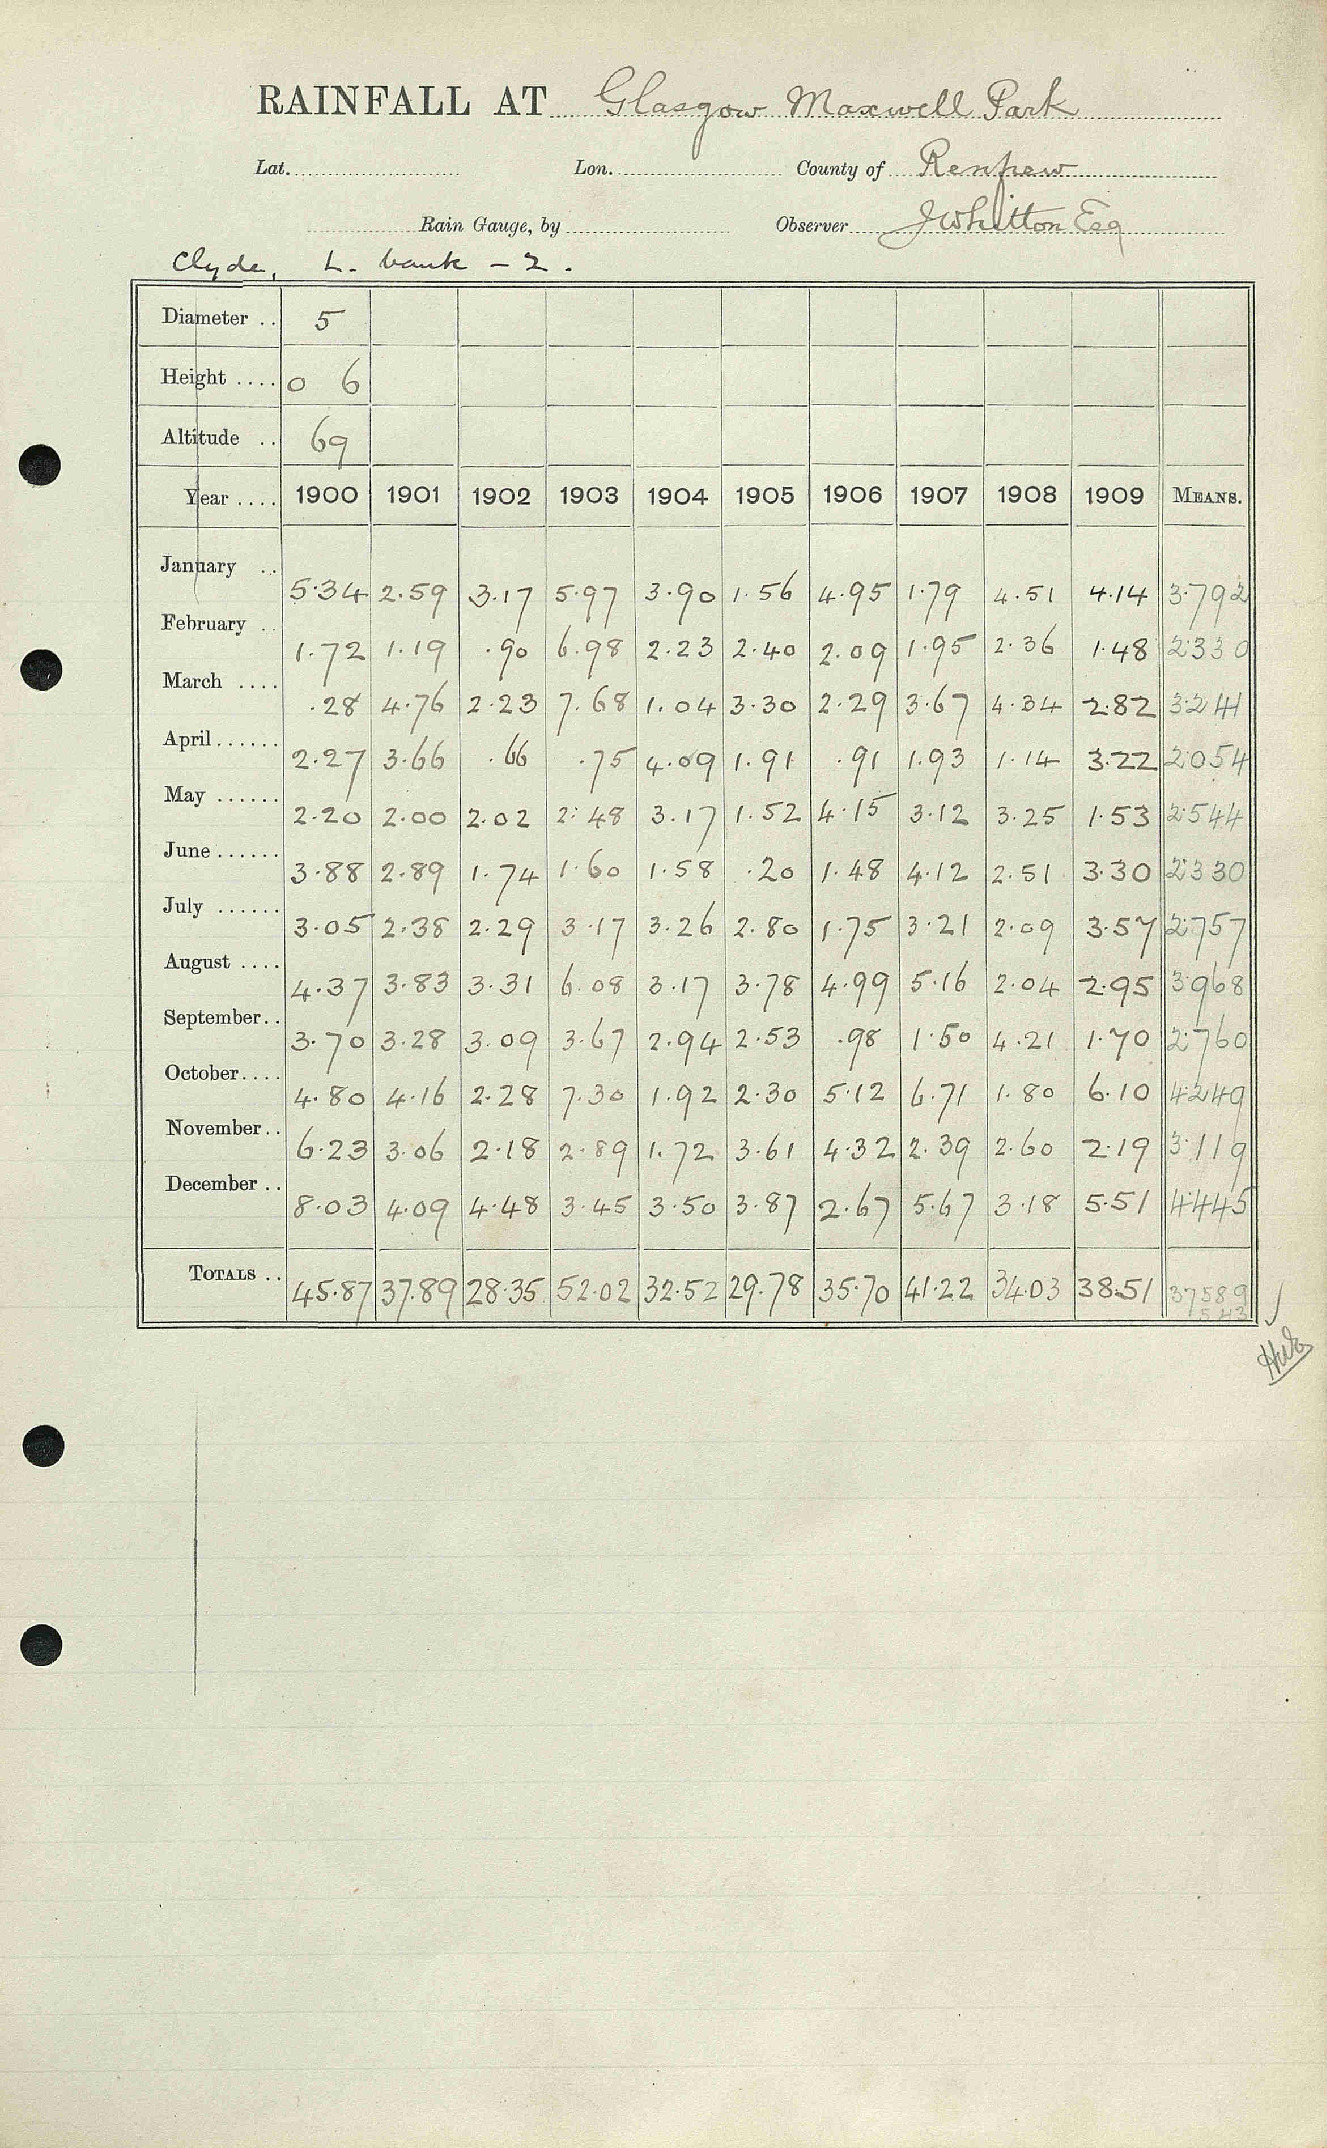 RAINFALL AT Glasgow Maxwell Park
Lat. Lon. County of Renfrew
Rain Gauge, by Observer J Whitton Esq
Clyde, L. bank - 2.
Diameter .. 5
Height .... 0 6
Altitude .. 69
Year .... 1900 1901 1902 1903 1904 1905 1906 1907 1908 1909 MEANS.
January .. 5.34 2.59 3.17 5.97 3.90 1.56 4.95 1.79 4.51 4.14 3.792
February .. 1.72 1.19 .90 6.98 2.23 2.40 2.09 1.95 2.36 1.48 2.330
March .... .28 4.76 2.23 7.68 1.04 3.30 2.29 3.67 4.34 2.82 3.241
April...... 2.27 3.66 .66 .75 4.09 1.91 .91 1.93 1.14 3.22 2.054
May ...... 2.20 2.00 2.02 2.48 3.17 1.52 4.15 3.12 3.25 1.53 2.544
June...... 3.88 2.89 1.74 1.60 1.58 .20 1.48 4.12 2.51 3.30 2.330
July ...... 3.05 2.38 2.29 3.17 3.26 2.80 1.75 3.21 2.09 3.57 2.757
August .... 4.37 3.83 3.31 6.08 3.17 3.78 4.99 5.16 2.04 2.95 3.968
September.. 3.70 3.28 3.09 3.67 2.94 2.53 .98 1.50 4.21 1.70 2.760
October.... 4.80 4.16 2.28 7.30 1.92 2.30 5.12 6.71 1.80 6.10 4.249
November.. 6.23 3.06 2.18 2.89 1.72 3.61 4.32 2.39 2.60 2.19 3.119
December .. 8.03 4.09 4.48 3.45 3.50 3.87 2.67 5.67 3.18 5.51 4.445
TOTALS .. 45.87 37.89 28.35 52.02 32.52 29.78 35.70 41.22 34.03 38.51 37.589
543